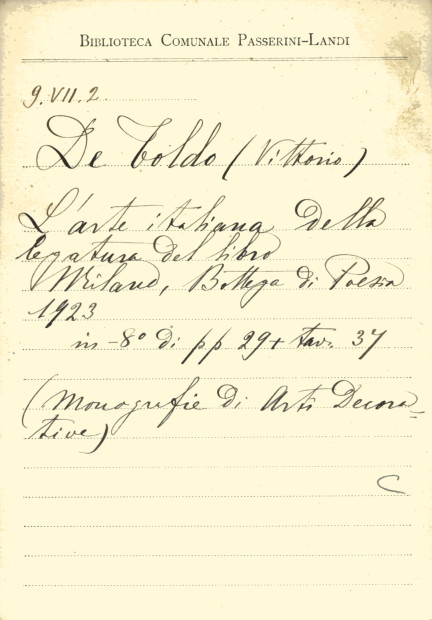 BIBLIOTECA COMUNALE PASSERINI-LANDI
9.VII.2
De Toldo (Vittorio)
L'arte italiana della
legatura del libro
Milano, Bottega di Poesia
1923
in-8° di pp 29 + tav. 37
(Monografie di Arti Decora-
tive)
C